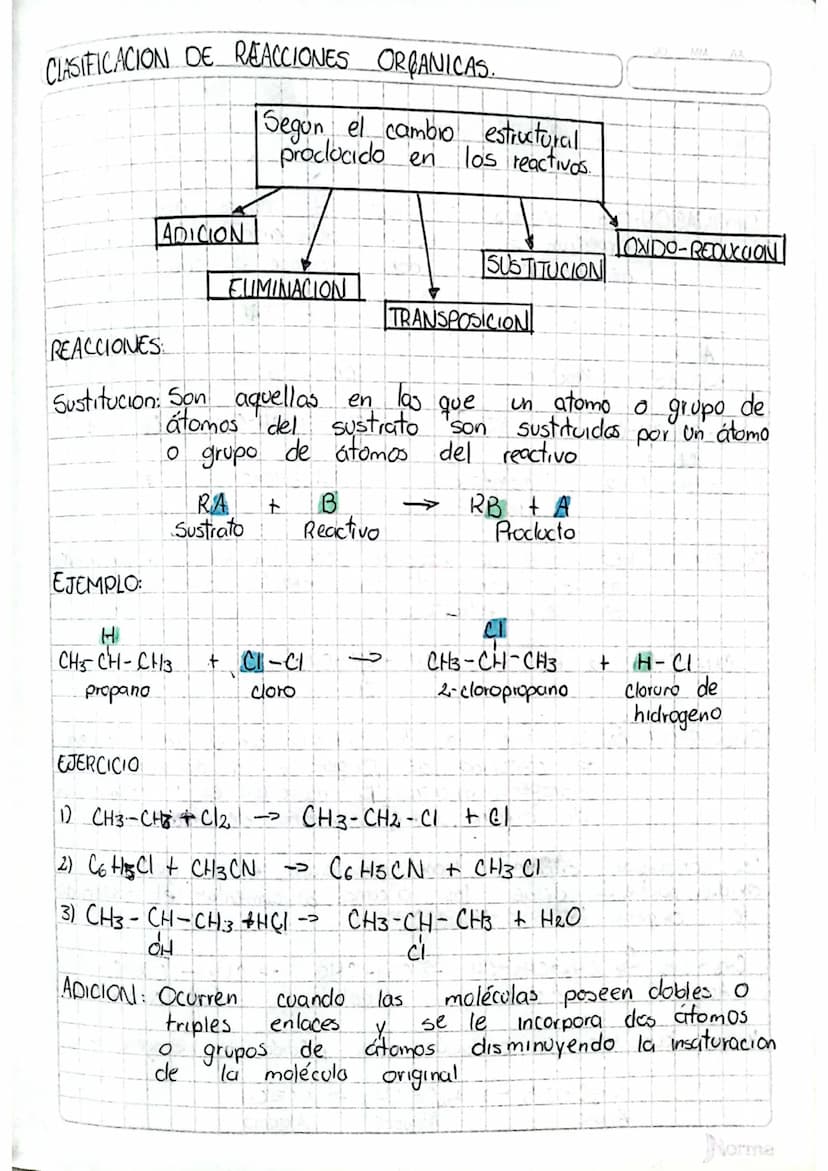 CLASIFICACION DE REACCIONES ORGANICAS.
MM AA
Según el cambio estructural
producido en los reactivos.
ADICION
OXIDO-REDUCCION
SUSTITUCION
ELIMINACION
TRANSPOSICION
REACCIONES:
Sustitucion: Son aquellas en las que un atomo o grupo de
átomos del sustrato son sustituidas por un átomo
o grupo de átomos del reactivo
RA + B → RB + A
Sustrato Reactivo Producto
EJEMPLO:
H Cl
CH3-CH-CH3 + Cl-Cl → CH3-CH-CH3 + H-Cl
propano cloro 2-cloropropano cloruro de
hidrogeno
EJERCICIO
1) CH3-CH3 + Cl2 → CH3-CH2-Cl + Cl
2) C6H5Cl + CH3CN → C6H5CN + CH3Cl
3) CH3-CH-CH3 + HCl → CH3-CH-CH3 + H2O
OH Cl
ADICION: Ocurren cuando las moléculas poseen dobles o
triples enlaces y se le incorpora dos átomos
o grupos de átomos disminuyendo la insaturacion
de la molécula original
Norma